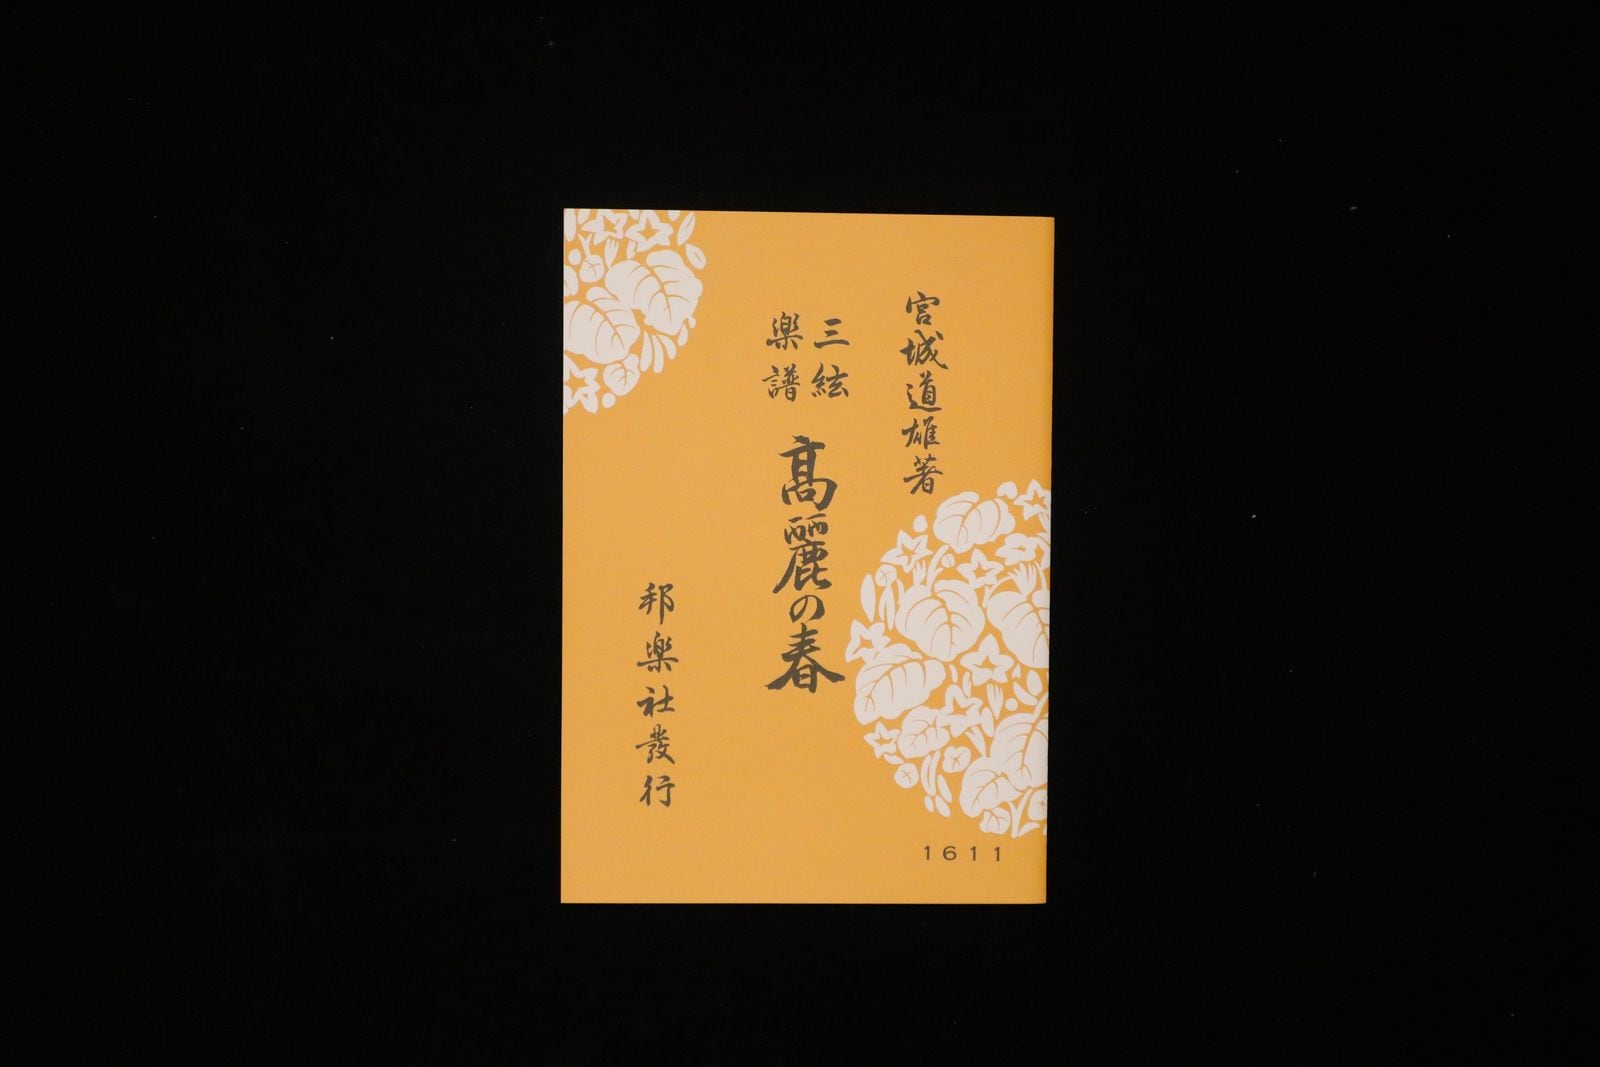 宮城道雄著
三絃
楽譜
髙麗の春
邦楽社發行
1611